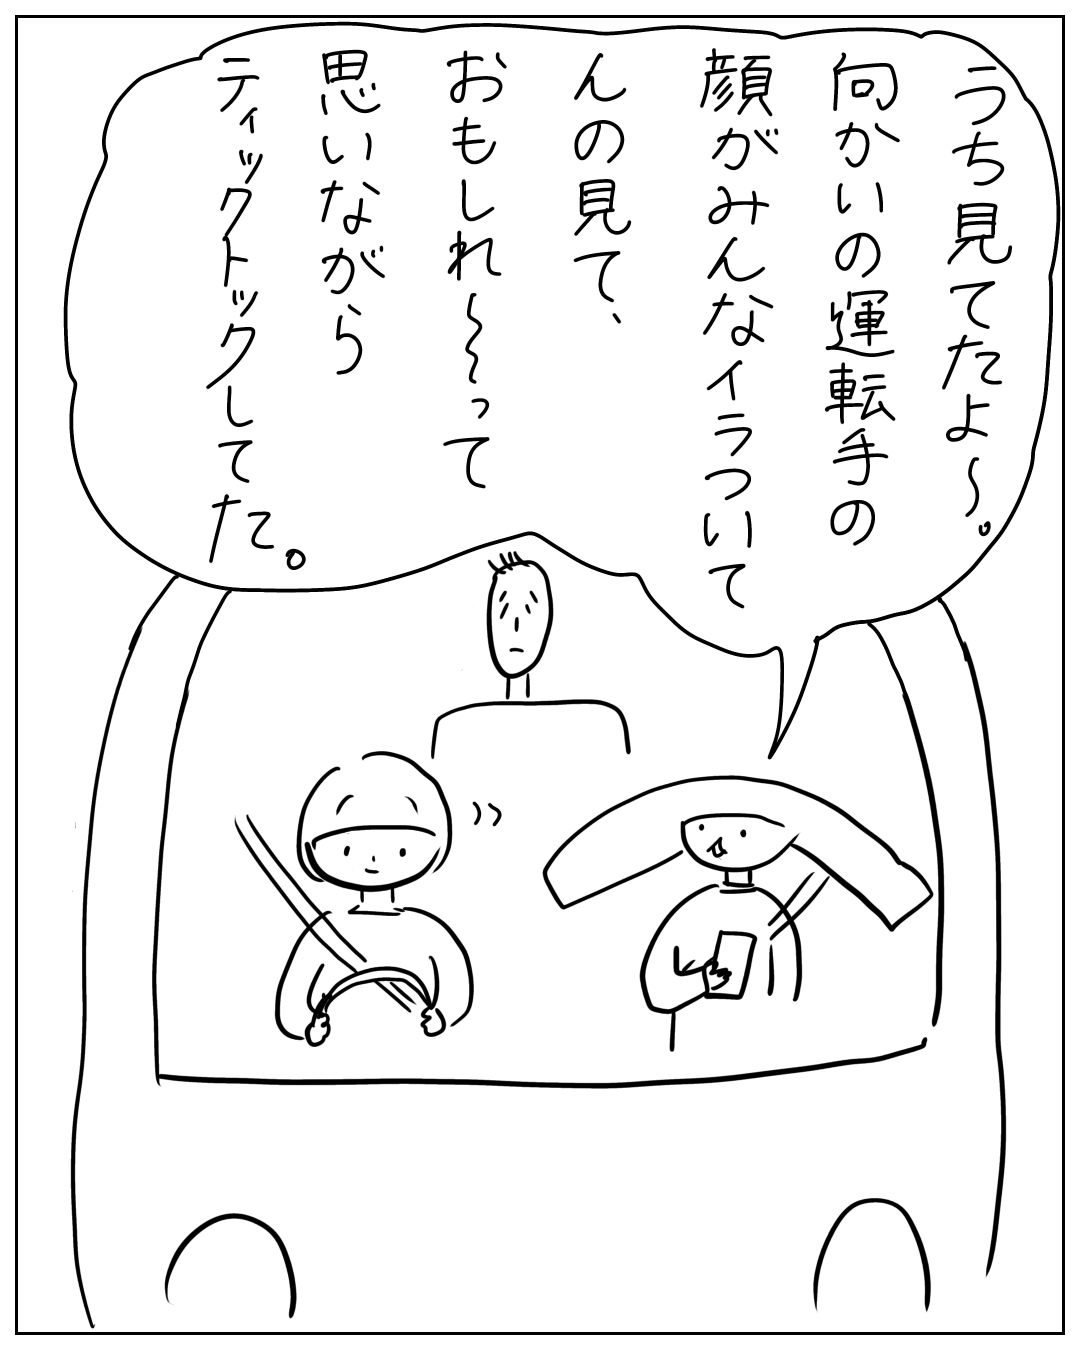 うち見てたよ〜。
向かいの運転手の
顔がみんなイラついて
んの見て、
おもしれ〜って
思いながら
ティックトックしてた。